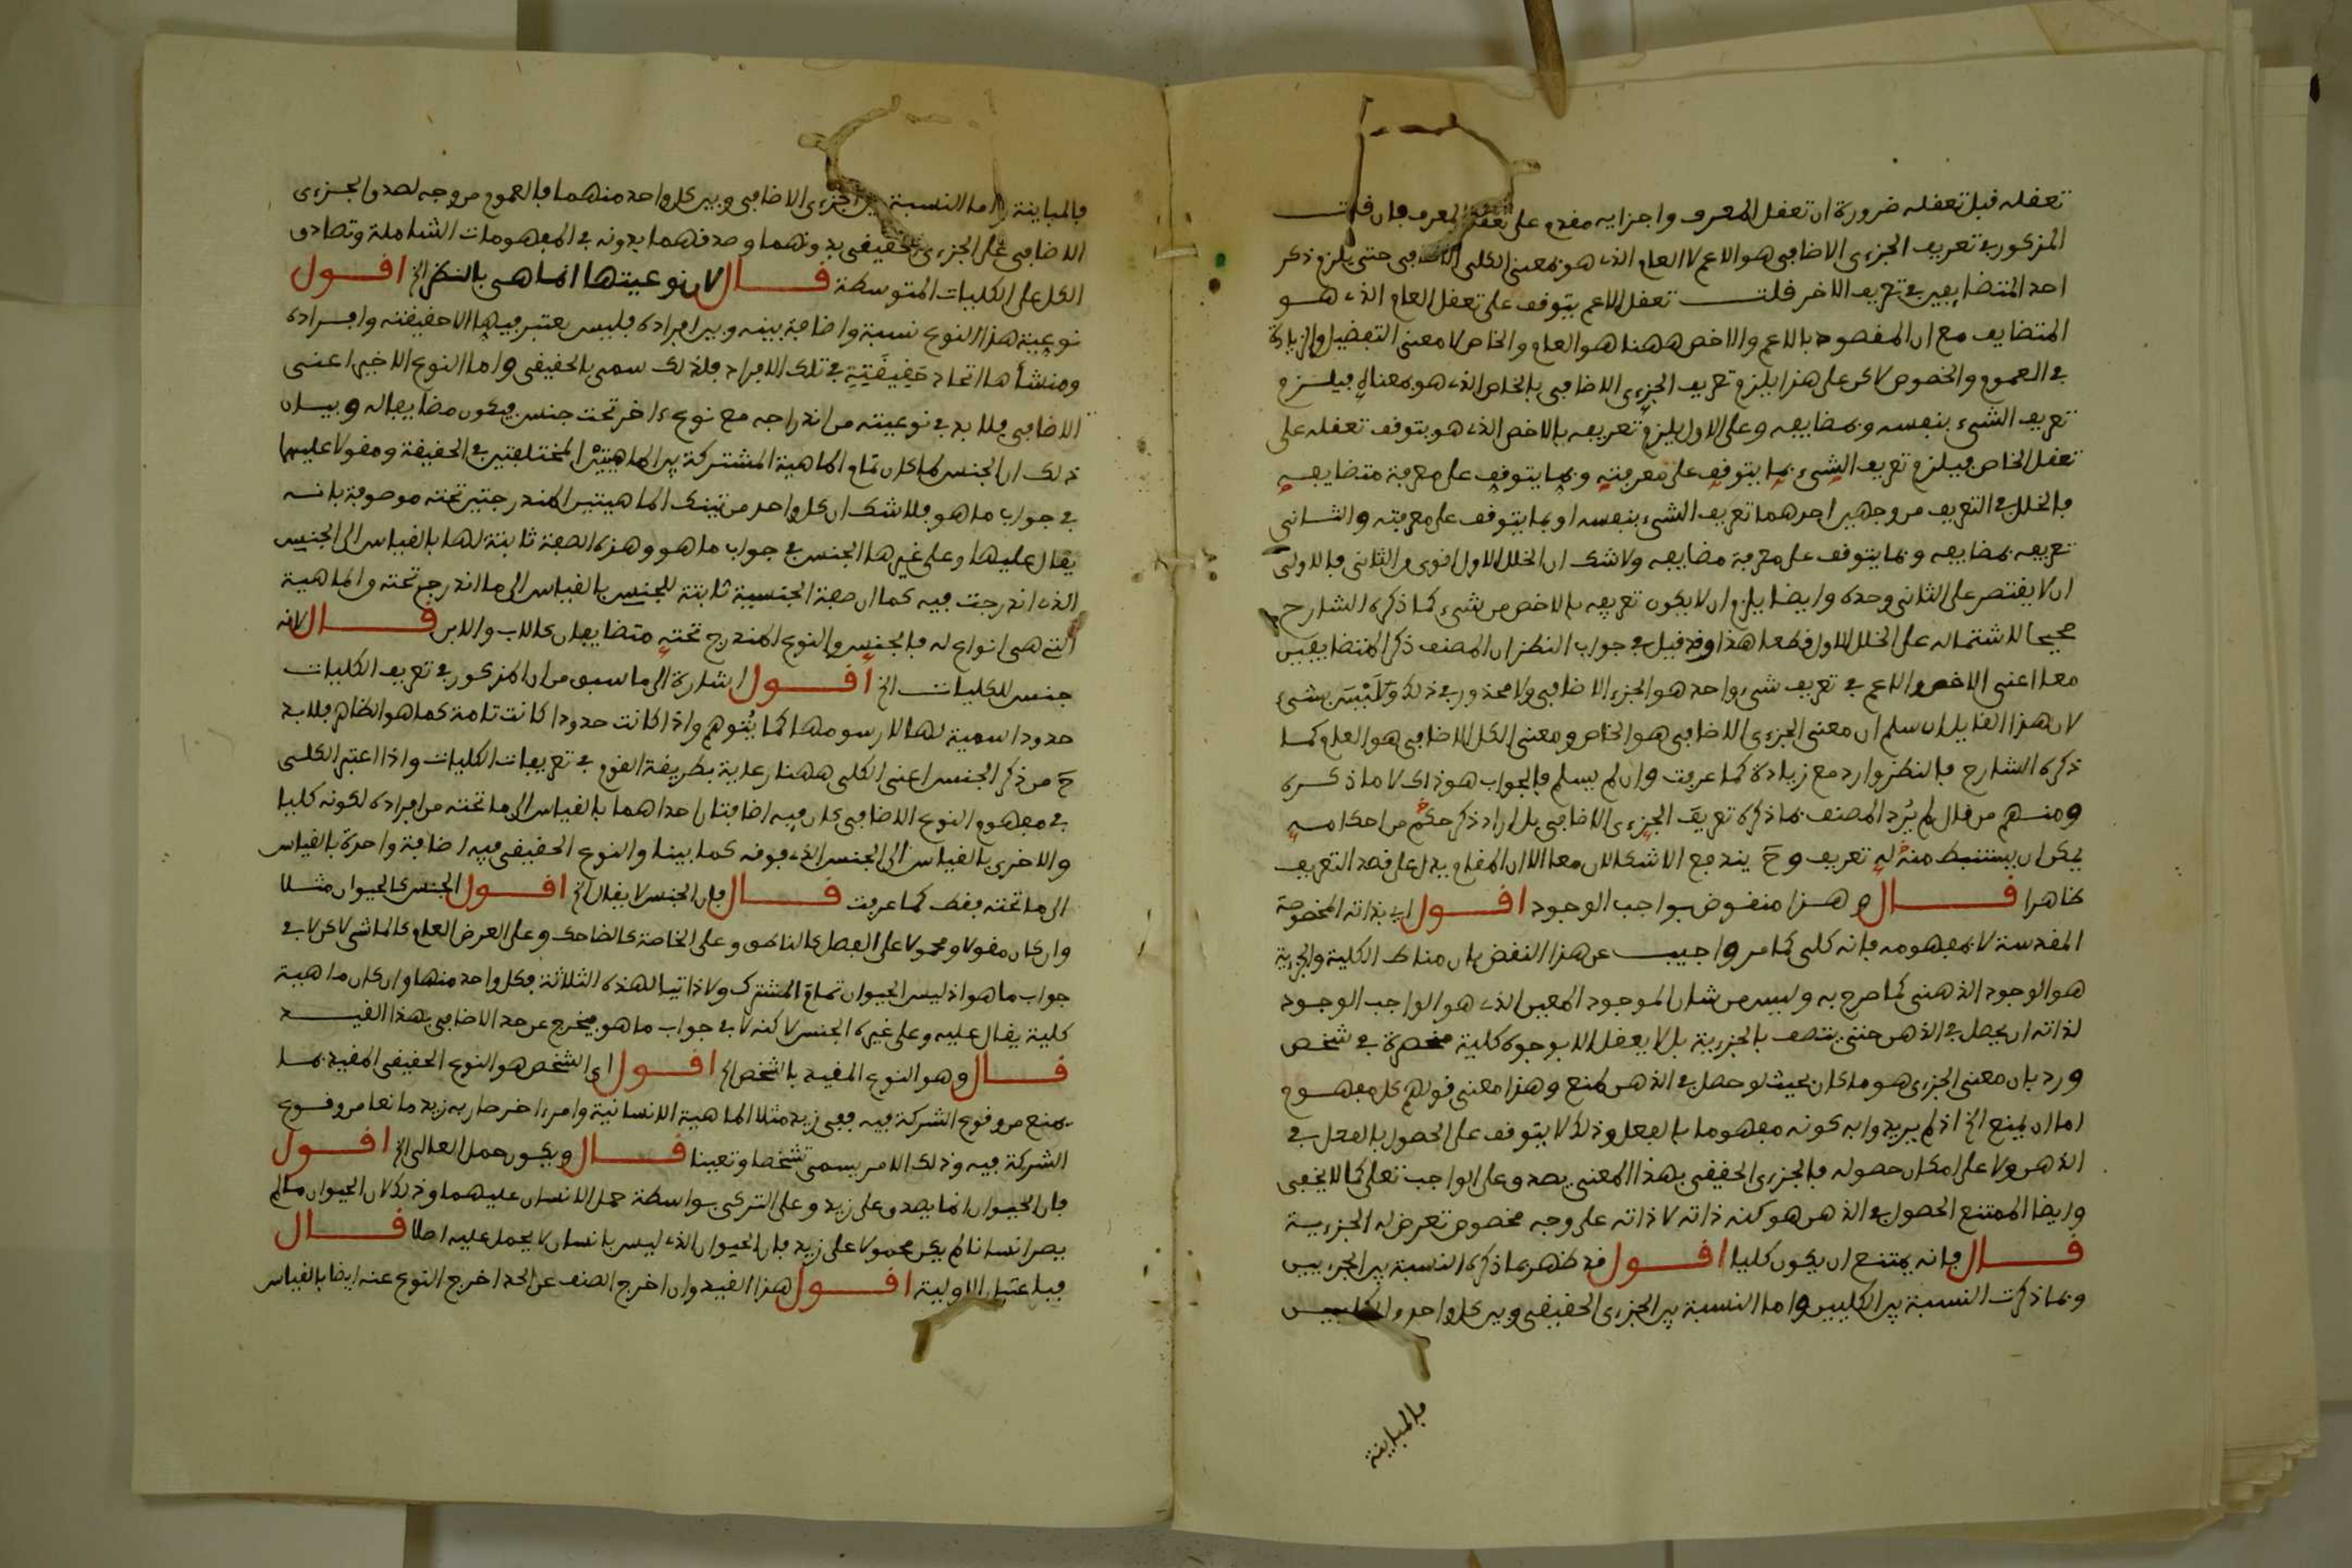 تعقله قبل تعقله ضرورة ان تعقل المعرف واجزايه مقدم على تعقل المعرف فان قلت
المذكور في تعريف الجزءى الاضافى هو الاعم لا العام الذى هو بمعنى الكلى الاضافى حتى يلزم ذكر
احد المتضايفين في تعريف الاخر قلت تعقل الاعم يتوقف على تعقل العام الذى هو
المتضايف مع ان المقصود بالاعم والاخص ههنا هو العام والخاص لا معنى التفضيل والزيادة
في العموم والخصوص لاكن على هذا يلزم تعريف الجزءى الاضافى بالخاص الذى هو بمعناه فيلزم
تعريف الشىء بنفسه وبمضايفه وعلى الاول يلزم تعريفه بالاخص الذى هو يتوقف تعقله على
تعقل الخاص فيلزم تعريف الشىء بما يتوقف على معرفته وبما يتوقف على معرفة متضايفه
فالخلل في التعريف من وجهين احدهما تعريف الشىء بنفسه او بما يتوقف على معرفته والثانى
تعريفه بمضايفه وبما يتوقف على معرفة مضايفه ولا شك ان الخلل الاول اقوى من الثانى فالاولى
ان لا يقتصر على الثانى وحده وايضا يلزم ان لا يكون تعريفه بالاخص من شىء كما ذكره الشارح
صحيحا لاشتماله على الخلل الاول قطعا هذا وقد قيل في جواب النظر ان المصنف ذكر المتضايفين
معا اعنى الاخص والاعم في تعريف شىء واحد هو الجزء الاضافى ولا محذور في ذلك وَلَيْسَ بشىء
لان هذا القايل ان سلم ان معنى الجزءى الاضافى هو الخاص ومعنى الكلى الاضافى هو العام كما
ذكره الشارح فالنظر وارد مع زيادة كما عرفت وان لم يسلم فالجواب هو ذاك لا ما ذكره
ومنهم من قال لم يُرد المصنف بما ذكره تعريفَ الجزءى الاضافى بل اراد ذكر حكم من احكامه
يمكن ان يستنبط منه له تعريف وحَ يندفع الاشكالان معا الا ان المقام يدل على قصد التعريف
ظاهرا قال وهذا منقوض بواجب الوجود اقول اى بذاته المخصوصة
المقدسة لا بمفهومه فانه كلى كما مر واجيب عن هذا النقض بان مناط الكلية والجزءية
هو الوجود الذهنى كما صرح به وليس من شان الموجود المعين الذى هو الواجب الوجود
لذاته ان يحصل في الذهن حتى يتصف بالجزءية بل لا يعقل الا بوجوه كلية منحصرة في شخص
ورد بان معنى الجزءى هو ما كان بحيث لو حصل في الذهن لمنع وهذا معنى قولهم كل مفهوم
اما ان يمنع الخ اذ لم يريدوا به كونه مفهوما بالفعل وذلك لا يتوقف على الحصول بالفعل في
الذهن ولا على امكان حصوله فالجزءى الحقيقى بهذا المعنى يصدق على الواجب تعلى كما لا يخفى
وايضا الممتنع الحصول في الذهن هو كنه ذاته لا ذاته على وجه مخصوص تعرض له الجزءية
قال فانه يمتنع ان يكون كليا اقول قد ظهر بما ذكره النسبة بين الجزءيين
وبما ذكرت النسبة بين الكليين واما النسبة بين الجزءى الحقيقى وبين كل واحد من الكليين
فالمباينة
فالمباينة واما النسبة بين الجزءى الاضافى وبين كل واحد منهما فالعموم من وجه لصدق الجزءى
الاضافى على الجزءى الحقيقى بدونهما وصدقهما بدونه في المفهومات الشاملة وتصادق
الكل على الكليات المتوسطة قال لان نوعيتها انما هى بالنظر الخ اقول
نوعية هذا النوع نسبة واضافة بينه وبين افراده فليس يعتبر فيها الا حقيقته وافراده
ومنشأها اتحاد حَقِيقَتِهِ في تلك الافراد فلذلك سمى بالحقيقى واما النوع الاخير اعنى
الاضافى فلا بد في نوعيته من اندراجه مع نوع ءاخر تحت جنس فيكون مضايفا له وبيان
ذلك ان الجنس لما كان تمام الماهية المشتركة بين الماهيتيْن المختلفتين في الحقيقة ومقولا عليهما
في جواب ما هو فلا شك ان كل واحد من تينك الماهيتين المندرجتين تحته موصوفة بانه
يقال عليها وعلى غيرها الجنس في جواب ما هو وهذه الصفة ثابتة لها بالقياس الى الجنس
الذى اندرجت فيه كما ان صفة الجنسية ثابتة للجنس بالقياس الى ما اندرج تحته والماهية
التى هى انواع له فالجنس والنوع المندرج تحته متضايفان كالاب والابن قال لانه
جنس للكليات الخ اقول اشارة الى ما سبق من ان المذكور في تعريف الكليات
حدود اسمية لها لا رسومها كما يُتوهم واذا كانت حدودا كانت تامة كما هو الظاهر فلا بد
حَ من ذكر الجنس اعنى الكلى ههنا رعاية بطريقة القوم في تعريفات الكليات واذا اعتبر الكلى
في مفهوم النوع الاضافى كان فيه اضافتان احداهما بالقياس الى ما تحته من افراده لكونه كليا
والاخرى بالقياس الى الجنس الذى فوقه كما بينا والنوع الحقيقى فيه اضافة واحدة بالقياس
الى ما تحته فقط كما عرفت قال فان الجنس لا يقال الخ اقول الجنس كالحيوان مثلا
وان كان مقولا ومحمولا على الفصل كالناطق وعلى الخاصة كالضاحك وعلى العرض العام كالماشى لاكن لا في
جواب ما هو اذ ليس الحيوان تمام المشترك ولا ذاتيا لهذه الثلاثة فكل واحد منها وان كان ماهية
كلية يقال عليه وعلى غيره الجنس لاكنه لا في جواب ما هو فيخرج عن حد الاضافى بهذا القيد
قال وهو النوع المقيد بالشخص الخ اقول اى الشخص هو النوع الحقيقى المقيد بما
يمنع من وقوع الشركة فيه ففى زيد مثلا الماهية الانسانية وامر ءاخر صار به زيد مانعا من وقوع
الشركة فيه وذلك الامر يسمى تشخصا وتعينا قال ويكون حمل العالى الخ اقول
فان الحيوان انما يصدق على زيد وعلى التركى بواسطة حمل الانسان عليهما وذلك لان الحيوان ما لم
يصر انسانا لم يكن محمولا على زيد فان الحيوان الذى ليس بانسان لا يحمل عليه اصلا قال
فباعتبار الاولية اقول هذا القيد وان اخرج الصنف عن الحد اخرج النوع عنه ايضا بالقياس